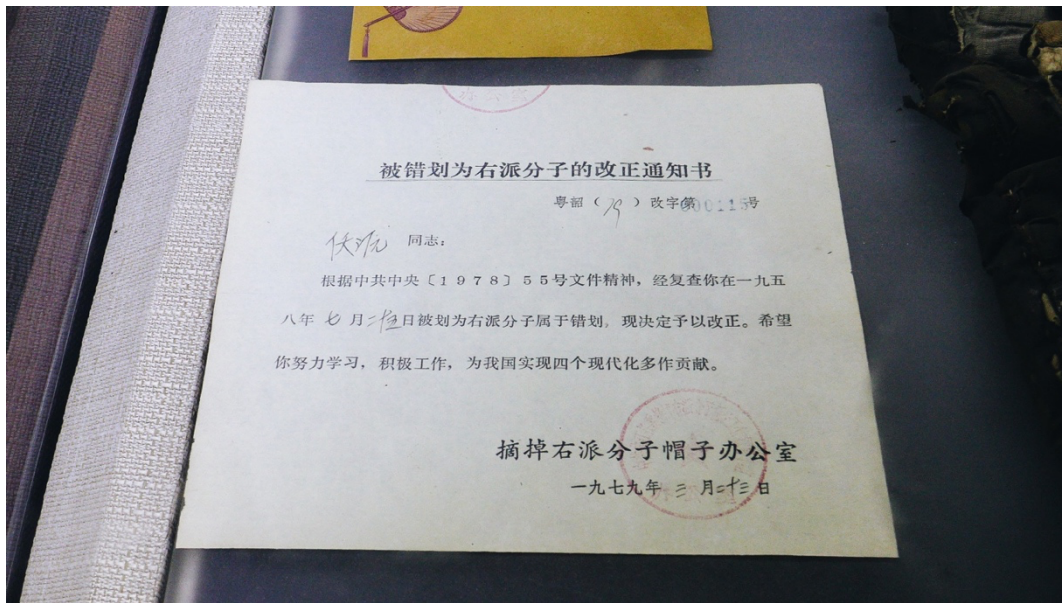 被错划为右派分子的改正通知书
粤韶（79）改字第000115号
同志：
根据中共中央〔1978〕55号文件精神，经复查你在一九五
八年七月二十五日被划为右派分子属于错划，现决定予以改正。希望
你努力学习，积极工作，为我国实现四个现代化多作贡献。
摘掉右派分子帽子办公室
一九七九年三月二十三日